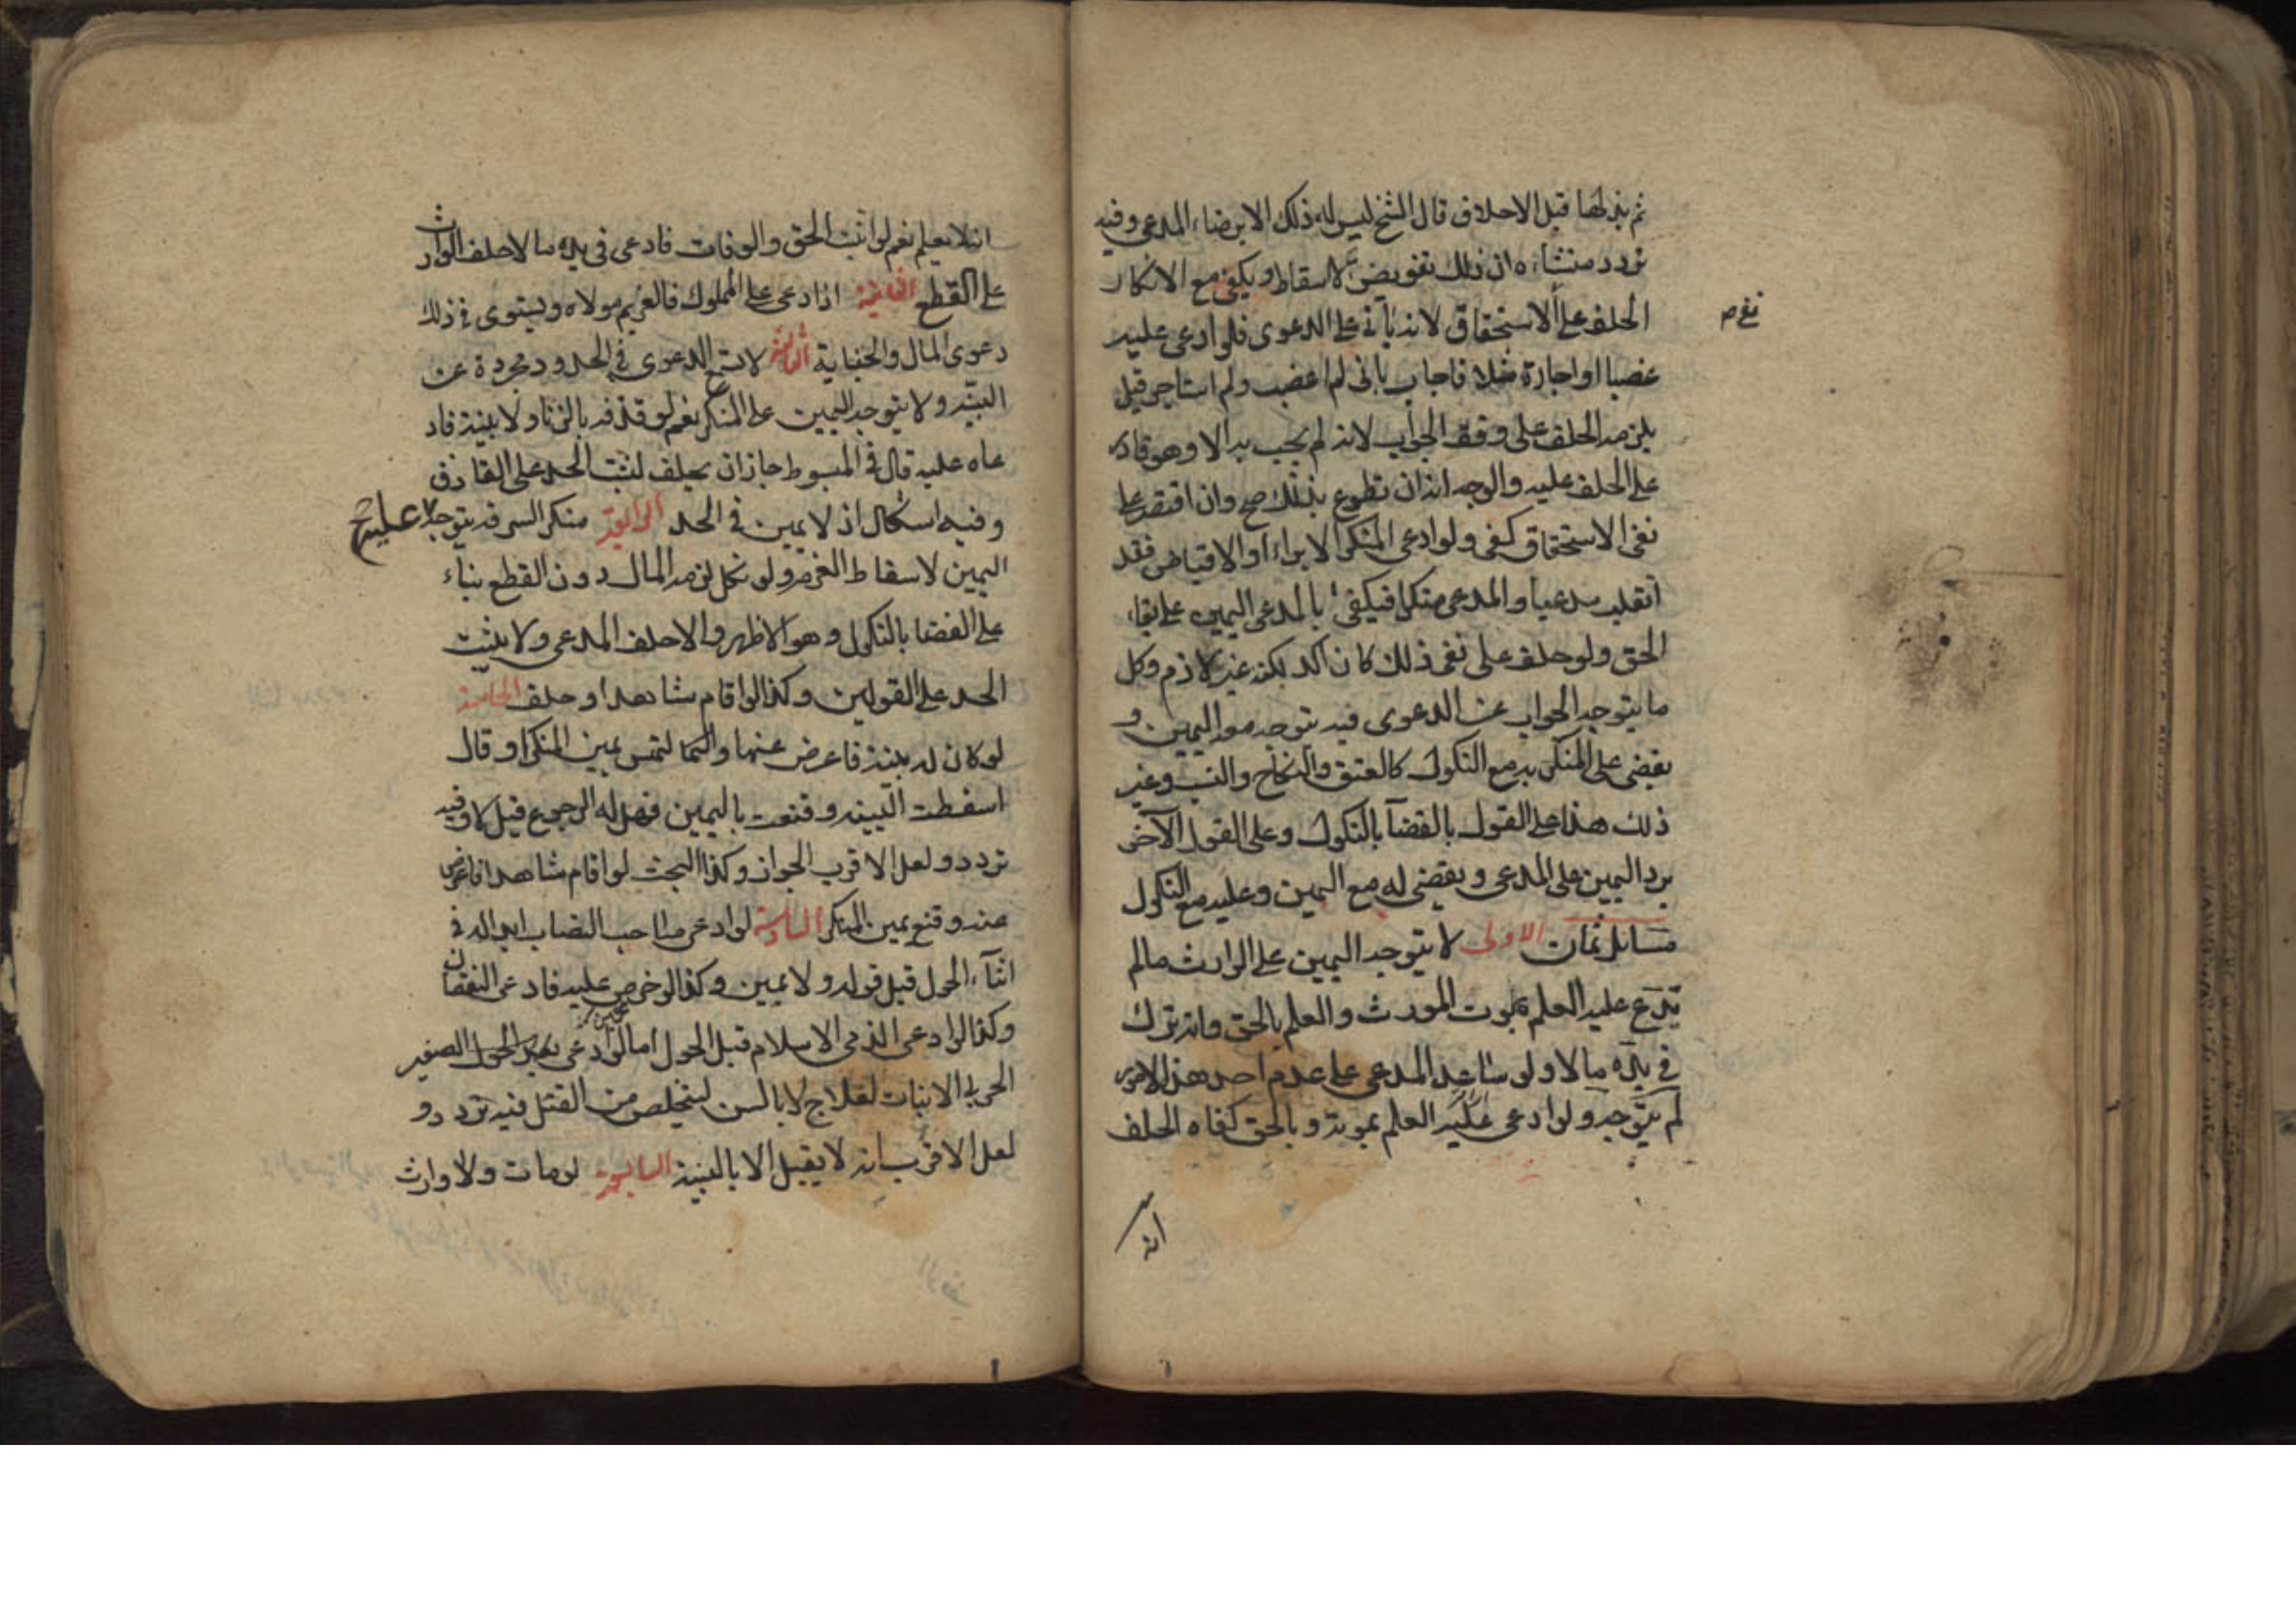 ثم بذلها قبل الاحلاف قال الشيخ ليس له ذلك الا برضاء المدعي وفيه
تردد منشاءه ان ذلك تفويض لاسقاط ويكفي مع الانكار
الحلف على الاستحقاق لانه يأتي على الدعوى فلو ادعى عليه
نغ ص
غصبا او اجارة مثلا فاجاب باني لم اغصب ولم استاجر قيل
يلزمه الحلف على وفق الجواب لانه لم يجب به الا وهو قادر
على الحلف عليه والوجه انه ان تطوع بذلك صح وان اقتصر على
نفى الاستحقاق كفى ولو ادعى المنكر الابراء او الاقباض فقد
انقلب مدعيا والمدعى منكرا فيكفى المدعى اليمين على بقاء
الحق ولو حلف على نفى ذلك كان آكد لكنه غير لازم وكل
ما يتوجه الجواب عن الدعوى فيه يتوجه معه اليمين و
يقضى على المنكر به مع النكول كالعتق والنكاح والنسب وغير
ذلك هذا على القول بالقضآ بالنكول وعلى القول الآخر
يرد اليمين على المدعى ويقضى له مع اليمين وعليه مع النكول
مسائل ثمان الاولى لا يتوجه اليمين على الوارث مالم
يدع عليه العلم بموت المورث والعلم بالحق وانه ترك
في يده مالا ولو ساعد المدعى على عدم احد هذه الامور
لم يتوجه ولو ادعى عليه العلم بموته وبالحق كفاه الحلف
انه
انه لا يعلم نعم لو اثبت الحق والوفات فادعى في يده مالا حلف الوارث
على القطع الثانية اذا ادعى على المملوك فالغريم مولاه ويستوى في ذلك
دعوى المال والجناية الثالثة لا تسمع الدعوى في الحدود مجردة عن
البينه ولا يتوجه اليمين على المنكر نعم لو قذفه بالزنا ولا بينة فاد
عاه عليه قال في المبسوط جاز ان يحلف لثبت الحد على القاذف
وفيه اشكال اذ لا يمين في الحد الرابعة منكر السرقه يتوجه عليه
اليمين لاسقاط الغرم ولو نكل لزمه المال دون القطع بناء
على القضا بالنكول وهو الاظهر والا حلف المدعى ولا يثبت
الحد على القولين وكذا لو اقام شاهدا وحلف الخامسة
لو كان له بينة فاعرض عنها والتمس يمين المنكر او قال
اسقطت البينه وقنعت باليمين فهل له الرجوع قيل لا وفيه
تردد ولعل الاقرب الجواز وكذا البحث لو اقام شاهدا فاعرض
عنه وقنع بيمين المنكر السادسة لو ادعى صاحب النصاب ابداله في
اثنآء الحول قبل قوله ولا يمين وكذا لو خرص عليه فادعى النقصان
وكذا لو ادعى الذمى الاسلام قبل الحول اما لو ادعى الصغير
الحربى الانبات لعلاج لا بالسن ليتخلص من القتل فيه تردد و
لعل الاقرب انه لا يقبل الا بالبينة السابعة لو مات ولا وارث